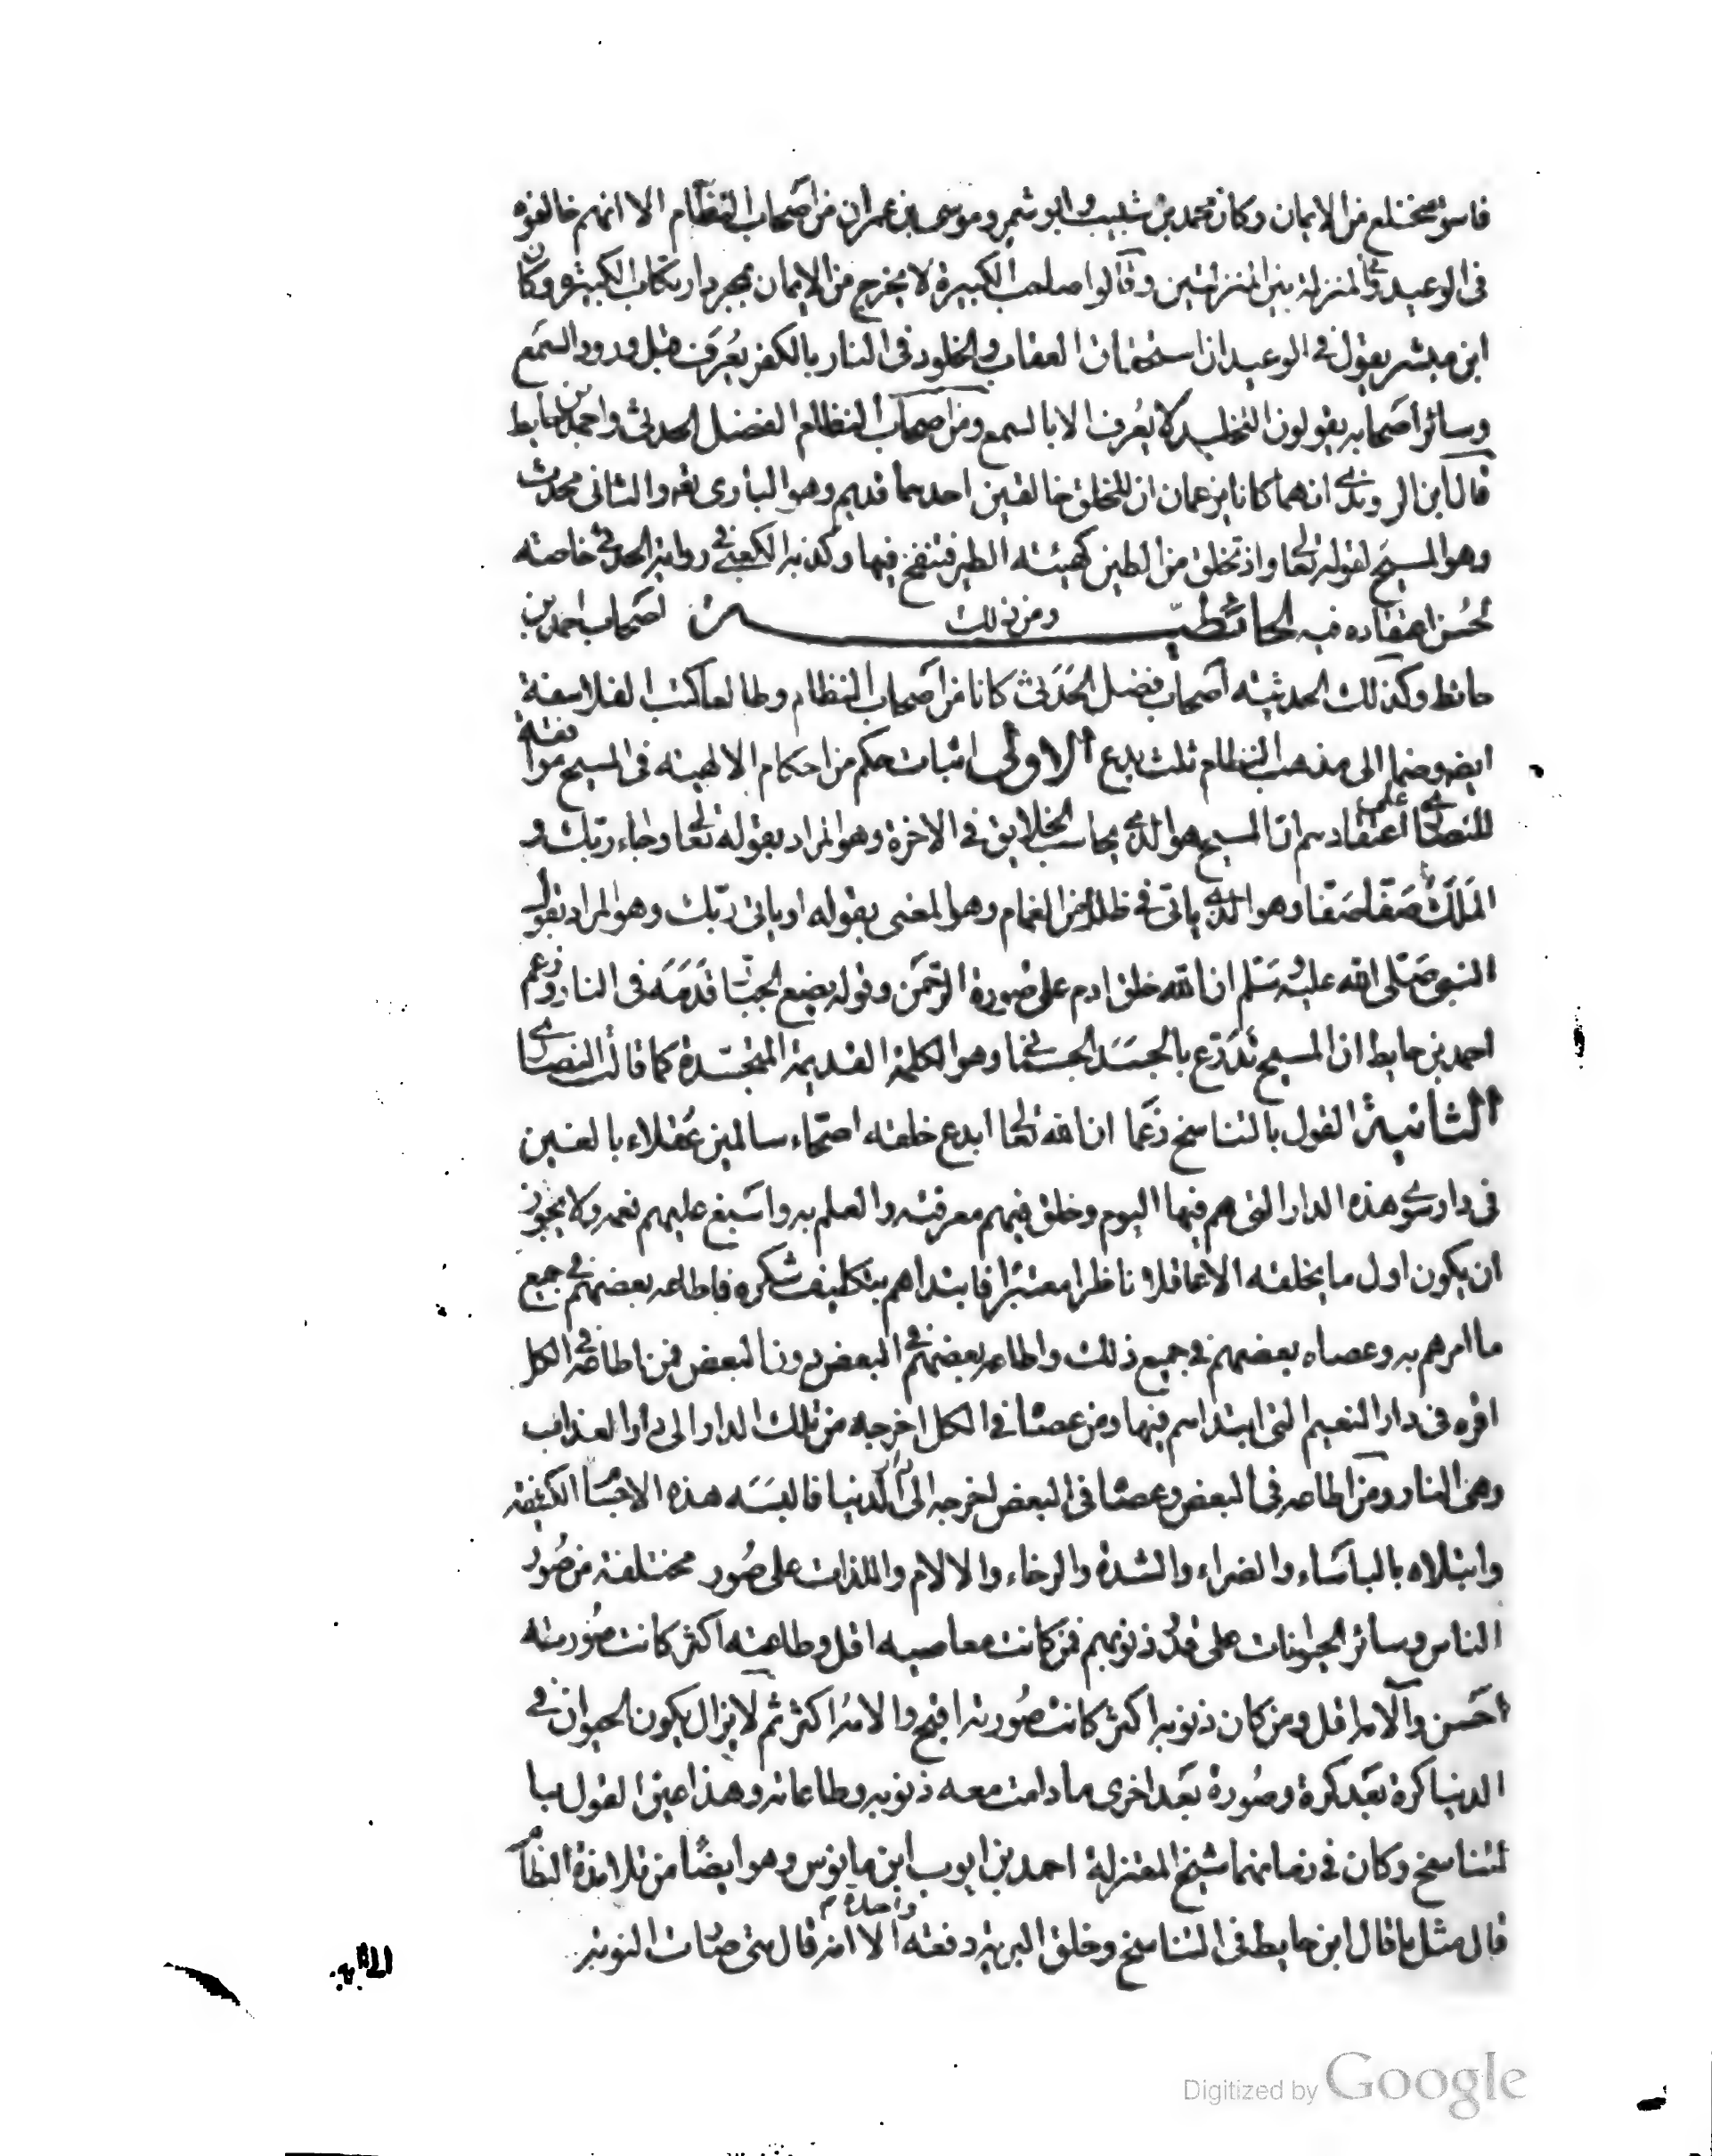 فاسق مختلع من الايمان وكان محمد بن شبيب وابو شمر وموسى بن عمران من اصحاب النظام الا انهم خالفوه
في الوعيد والمنزلة بين المنزلتين وقالوا صاحب الكبيرة لا يخرج من الايمان بمجرد ارتكاب الكبيرة وكان
ابن مبشر يقول في الوعيد ان استحقاق العقاب والخلود في النار بالكفر يعرف قبل ورود السمع
وسائر اصحابه يقولون التخليد لا يعرف الا بالسمع ومن اصحاب النظام الفضل الحدثي واحمد بن حابط
قال ابن الروندي انهما كانا يزعمان ان للخلق خالقين احدهما قديم وهو الباري تعه والثاني محدث
وهو المسيح لقوله تعالى واذ تخلق من الطين كهيئة الطير فتنفخ فيها وكذبه الكعبي في رواية الحدثي خاصة
لحسن اعتقاده فيه الحائطية ومن ذلك اصحاب احمد بن
حائط وكذلك الحدثية اصحاب فضل الحدثي كانا من اصحاب النظام وطالعا كتب الفلاسفة
ايضا وضما الى مذهب النظام ثلث بدع الاولى اثبات حكم من احكام الالهية في المسيح موافقة
للنصارى على اعتقادهم ان المسيح هو الذي يحاسب الخلايق في الاخرة وهو المراد بقوله تعالى وجاء ربك و
الملك صفا صفا وهو الذي ياتي في ظلل من الغمام وهو المعنى بقوله او ياتي ربك وهو المراد بقول
النبي صلى الله عليه وسلم ان الله خلق ادم على صورة الرحمن وقوله يضع الجبار قدمه في النار وزعم
احمد بن حابط ان المسيح تدرع بالجسد الجسماني وهو الكلمة القديمة المتجسدة كما قالت النصارى
الثانية القول بالتناسخ زعما ان الله تعالى ابدع خلقه اصحاء سالمين عقلاء بالغين
في دار سوى هذه الدار التي هم فيها اليوم وخلق فيهم معرفته والعلم به واسبغ عليهم نعمه ولا يجوز
ان يكون اول ما يخلقه الا عاقلا ناظرا معتبرا فابتداهم بتكليف شكره فاطاعه بعضهم في جميع
ما امرهم به وعصاه بعضهم في جميع ذلك واطاعه بعضهم في البعض دون البعض فمن اطاعه في الكل
اقره في دار النعيم التي ابتداهم فيها ومن عصاه في الكل اخرجه من تلك الدار الى دار العذاب
وهي النار ومن اطاعه في البعض وعصاه في البعض اخرجه الى دار الدنيا فالبسه هذه الاجسام الكثيفة
وابتلاه بالباساء والضراء والشدة والرخاء والالام واللذات على صور مختلفة من صور
الناس وسائر الحيوانات على قدر ذنوبهم فمن كانت معاصيه اقل وطاعته اكثر كانت صورته
احسن والامه اقل ومن كان ذنوبه اكثر كانت صورته اقبح والامه اكثر ثم لا يزال يكون الحيوان في
الدنيا كرة بعد كرة وصورة بعد اخرى ما دامت معه ذنوبه وطاعاته وهذا عين القول با
لتناسخ وكان في زمانهما شيخ المعتزلة احمد بن ايوب ابن مانوس وهو ايضا من تلامذة النظام
قال مثل ما قال ابن حابط في التناسخ وخلق البرية دفعة واحدة الا انه قال متى صارت النوبة